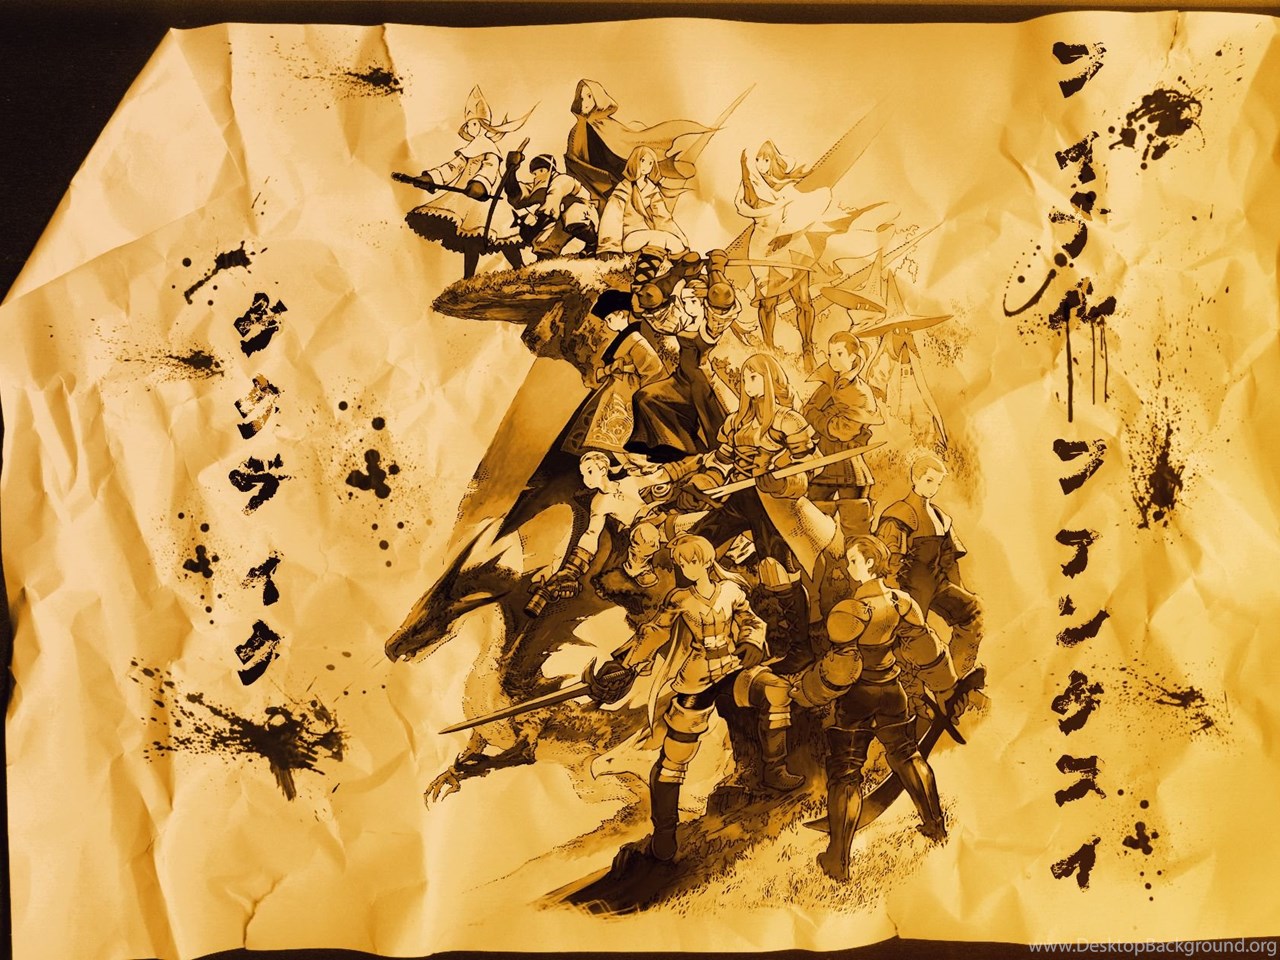 フイナル フアンタスイ
タクティク
www.DesktopBackground.org